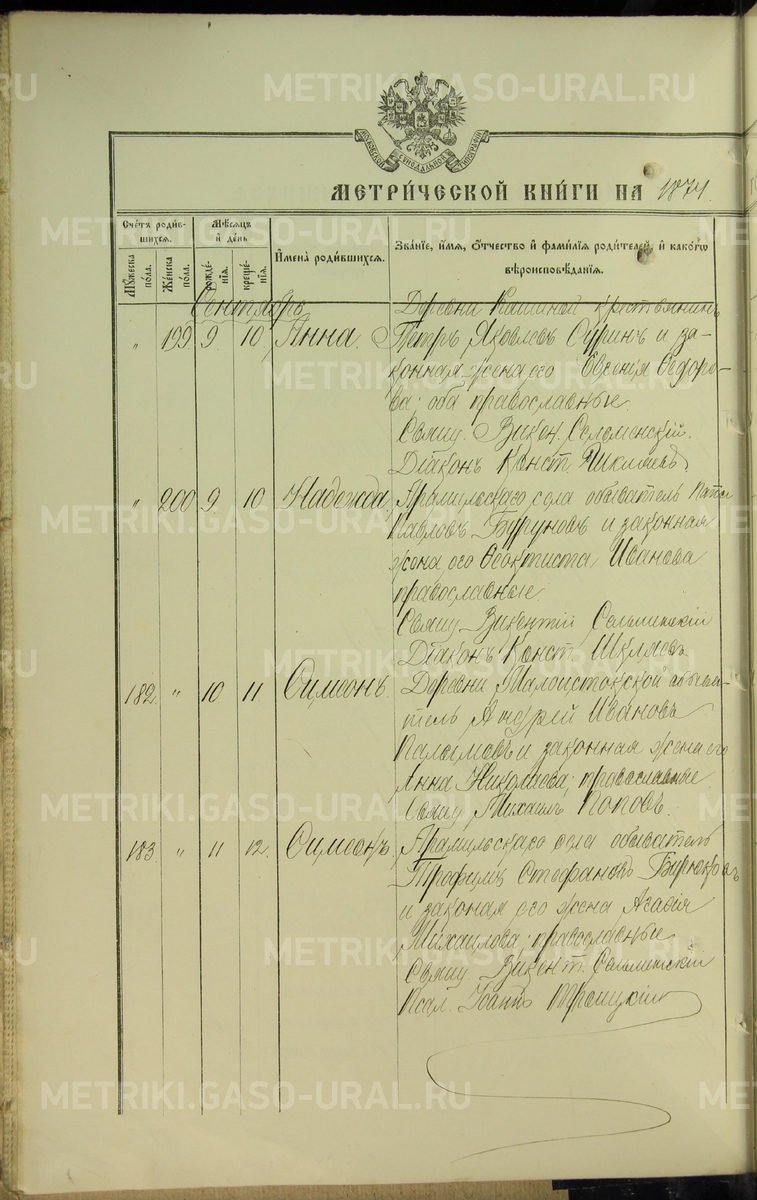 METRIKI.GASO-URAL.RU
МОСКОВСКОЙ СѴНОДАЛЬНОЙ ТИПОГРАФІИ
МЕТРИ́ЧЕСКОЙ КНИ́ГИ НА 1874.
Сче́тъ роди́вшихся.
Мꙋ́жеска по́ла.
Же́нска по́ла.
Мѣ́сяцъ и҆ де́нь
рожде́нїѧ.
креще́нїѧ.
И҆мена̀ роди́вшихся.
Зва́нїе, и҆́мѧ, ѻ҆́тчество и҆ фами́лїѧ роди́телей, и҆ како́гѡ вѣроисповѣ́данїѧ.
Сентябрь
Деревни Кашиной крестьянинъ
" 199 9 10 Анна. Петръ Яковлевъ Суринъ и за-
конная жена его Евгенія Ѳедоро-
ва; оба православные.
Свящ. Викен. Сельменскій.
Діаконъ Конст. Шкляевъ
" 200 9. 10. Надежда Арамильскаго села обыватель
Павловъ Буруновъ и законная
жена его Ѳеоктиста Иванова
православные
Свящ. Викентій Сельменскій
Діаконъ Конст. Шкляевъ
182. " 10 11 Симеонъ. Деревни Малоистокской обыва-
тель Андрей Ивановъ
и законная жена его
Анна Николаева; православные
Свящ. Михаилъ Поповъ.
183 " 11 12. Симеонъ Арамильскаго села обыватель
Трофимъ Стефановъ Бирюковъ
и законная его жена Агафія
Михаилова; православные
Свящ. Викент. Сельменскій
Псал. Іоаннъ Троицкій